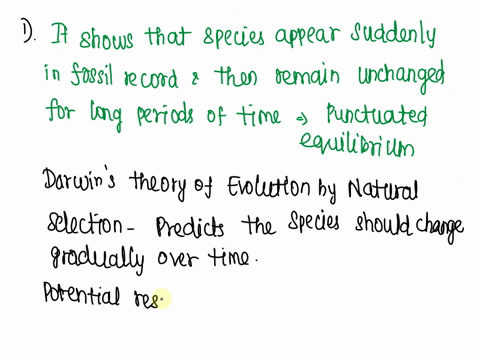 1). It shows that species appear suddenly
in fossil record & then remain unchanged
for long periods of time → Punctuated
equilibrium
Darwin's theory of Evolution by Natural
Selection - Predicts the Species should change
gradually over time.
Potential res